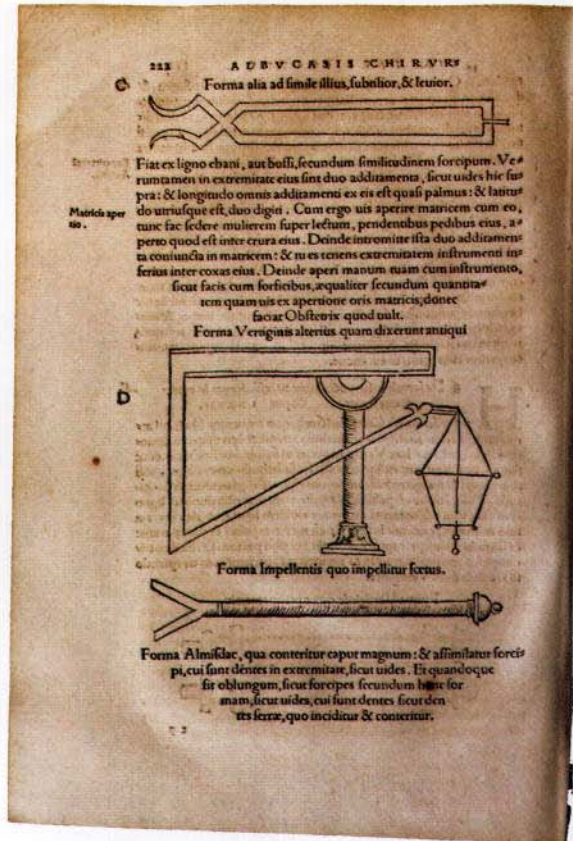 222 ALBVCASIS CHIRVR=
C
Forma alia ad simile illius, subtilior, & leuior.
Fiat ex ligno ebani, aut bussi, secundum similitudinem forcipum. Ve=
rumtamen in extremitate eius sint duo additamenta, sicut uides hic su=
pra: & longitudo omnis additamenti ex eis est quasi palmus: & latitu=
Matricis aper
tio.
do utriusque est, duo digiti. Cum ergo uis aperire matricem cum eo,
tunc fac sedere mulierem super lectum, pendentibus pedibus eius, a=
perto quod est inter crura eius. Deinde intromitte ista duo additamen=
ta coniuncta in matricem: & tu es tenens extremitatem instrumenti in=
ferius inter coxas eius. Deinde aperi manum tuam cum instrumento,
sicut facis cum forficibus, æqualiter secundum quantita=
tem quam uis ex apertione oris matricis, donec
faciat Obstetrix quod uult.
Forma Vertiginis alterius quam dixerunt antiqui
D
Forma Impellentis quo impellitur fœtus.
Forma Almisdac, qua conteritur caput magnum: & assimilatur forci=
pi, cui sunt dentes in extremitate, sicut uides. Et quandoque
fit oblungum, sicut forcipes secundum hanc for
mam, sicut uides, cui sunt dentes sicut den
tes serræ, quo inciditur & conteritur.